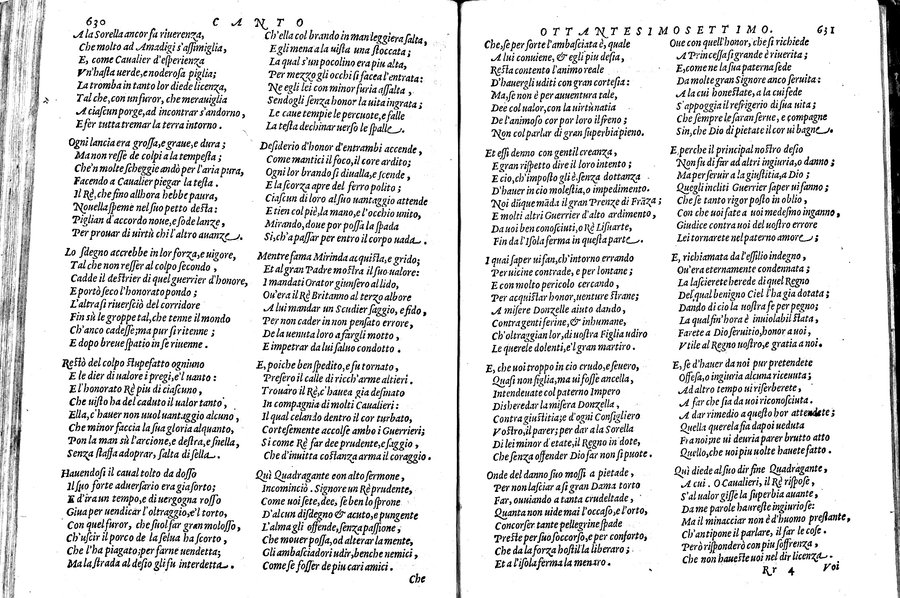 630 CANTO
A la Sorella ancor fa riuerenza,
Che molto ad Amadigi s'assimiglia,
E, come Caualier d'esperienza
Vn'hasta uerde, e noderosa piglia;
La tromba in tanto lor diede licenza,
Tal che, con un furor, che merauiglia
A ciascun porge, ad incontrar s'andorno,
E fer tutta tremar la terra intorno.
Ogni lancia era grossa, e graue, e dura;
Ma non resse de colpi a la tempesta;
Che'n molte scheggie andò per l'aria pura,
Facendo a Caualier piegar la testa.
Il Rè, che fino allhora hebbe paura,
Nouella speme nel suo petto desta:
Piglian d'accordo noue, e sode lanze,
Per prouar di uirtù chi l'altro auanze.
Lo sdegno accrebbe in lor forza, e uigore,
Tal che non resser al colpo secondo,
Cadde il destrier di quel guerrier d'honore,
E portò seco l'honorato pondo;
L'altra si riuersciò del corridore
Fin sù le groppe tal, che tenne il mondo
Ch'anco cadesse; ma pur si ritenne;
E dopo breue spatio in se riuenne.
Restò del colpo stupefatto ogniuno
E le dier di ualore i pregi, e'l uanto:
E l'honorato Rè piu di ciascuno,
Che uisto ha del caduto il ualor tanto,
Ella, c'hauer non uuol uantaggio alcuno,
Che minor faccia la sua gloria alquanto,
Pon la man sù l'arcione, e destra, e snella,
Senza staffa adoprar, salta di sella.
Hauendosi il caual tolto da dosso
Il suo forte aduersario era giaforto;
E d'ira un tempo, e di uergogna rosso
Giua per uendicar l'oltraggio, e'l torto,
Con quel furor, che suol far gran molosso,
Ch'uscir il porco de la selua ha scorto,
Che l'ha piagato; per farne uendetta;
Ma la strada al desio gli fu interdetta.
Ch'ella col brando in man leggiera salta,
E gli mena a la uista una stoccata;
La qual s'un pocolino era piu alta,
Per mezzo gli occhi si facea l'entrata:
Ne egli lei con minor furia assalta,
Sendogli senza honor la uita ingrata;
Le caue tempie le percuote, e falle
La testa dechinar uerso le spalle.
Desiderio d'honor d'entrambi accende,
Come mantici il foco, il core ardito;
Ogni lor brando si diualla, e scende,
E la scorza apre del ferro polito;
Ciascun di loro al suo uantaggio attende
E tien col piè, la mano, e l'occhio unito,
Mirando, doue por possa la spada
Si, ch'a passar per entro il corpo uada.
Mentre fama Mirinda acquista, e grido;
Et al gran Padre mostra il suo ualore:
I mandati Orator giunsero al lido,
Ou'era il Rè Britanno al terzo albore
A lui mandar un Scudier saggio, e fido,
Per non cader in non pensato errore,
De la uenuta loro a fargli motto,
E impetrar da lui saluo condotto.
E, poiche ben spedito, e fu tornato,
Presero il calle di ricch'arme altieri.
Trouaro il Rè, c'hauea gia desinato
In compagnia di molti Caualieri:
Il qual celando dentro il cor turbato,
Cortesemente accolse ambo i Guerrieri;
Si come Rè far dee prudente, e saggio,
Che d'inuitta costanza arma il coraggio.
Quì Quadragante con alto sermone,
Incominciò. Signore un Rè prudente,
Come uoi sete, dee, se ben lo sprone
D'alcun disdegno & acuto, e pungente
L'alma gli offende, senza passione,
Che mouer possa, od alterar la mente,
Gli ambasciadori udir, benche nemici,
Come se fosser de piu cari amici.
Che
OTTANTESIMOSETTIMO. 631
Che, se per sorte l'ambasciata è, quale
A lui conuiene, & egli piu desia,
Resta contento l'animo reale
D'hauergli uditi con gran cortesia:
Ma, se non è per auuentura tale,
Dee col ualor, con la uirtù natia
De l'animoso cor por loro il freno;
Non col parlar di gran superbia pieno.
Et essi denno con gentil creanza,
E gran rispetto dire il loro intento;
E cio, ch'imposto gli è, senza dottanza
D'hauer in cio molestia, o impedimento.
Noi diique mãda il gran Prenze di Frãza;
E molti altri Guerrier d'alto ardimento,
Da uoi ben conosciuti, o Rè Lisuarte,
Fin da l'Isola ferma in questa parte.
I quai saper ui fan, ch'intorno errando
Per uicine contrade, e per lontane;
E con molto pericolo cercando,
Per acquistar honor, uenture strane;
A misere Donzelle aiuto dando,
Contra genti ferine, & inhumane,
Ch'oltraggian lor, di uostra Figlia udiro
Le querele dolenti, e'l gran martiro.
E, che uoi troppo in cio crudo, e seuero,
Quasi non figlia, ma ui fosse ancella,
Intendeuate col paterno Impero
Disheredar la misera Donzella,
Contra giustitia; e d'ogni Consigliero
Vostro, il parer; per dar a la Sorella
Di lei minor d'etate, il Regno in dote,
Che senza offender Dio far non si puote.
Onde del danno suo mossi a pietade,
Per non lasciar a si gran Dama torto
Far, ouuiando a tanta crudeltade,
Quanta non uide mai l'occaso, e l'orto,
Concorser tante pellegrine spade
Preste per suo soccorso, e per conforto,
Che da la forza hostil la liberaro;
Et a l'Isola ferma la menaro.
Oue con quell'honor, che si richiede
A Princepessa si grande è riuerita;
E, come ne la sua paterna sede
Da molte gran Signore anco seruita:
A la cui honestate, a la cui fede
S'appoggia il refrigerio di sua uita;
Che sempre le saran serue, e compagne
Sin, che Dio di pietate il cor ui bagne.
E perche il principal nostro desio
Non fu di far ad altri ingiuria, o danno;
Ma per seruir a la giustitia, a Dio;
Quegli incliti Guerrier saper ui fanno;
Che se tanto rigor posto in oblio,
Con che uoi fate a uoi medesmo inganno,
Giudice contra uoi del uostro errore
Lei tornarete nel paterno amore;
E, richiamata da l'essilio indegno,
Ou'era eternamente condennata;
La lascierete herede di quel Regno
Del qual benigno Ciel l'ha gia dotata;
Dando di cio la uostra fe per pegno;
La qual fin'hora è inuiolabil stata,
Farete a Dio seruitio, honor a uoi,
Vtile al Regno uostro, e gratia a noi.
E, se d'hauer da noi pur pretendete
Offesa, o ingiuria alcuna riceuuta;
Ad altro tempo ui riserberete,
A far che sia da uoi riconosciuta.
A dar rimedio a questo hor attendete;
Quella querela sia dapoi ueduta
Fra noi; ne ui deuria parer brutto atto
Quello, che uoi piu uolte hauete fatto.
Qui diede al suo dir fine Quadragante,
A cui. O Caualieri, il Rè rispose,
S'al ualor gisse la superbia auante,
Da me parole haureste ingiuriose:
Ma il minacciar non è d'huomo prestante,
Ch'antipone il parlare, il far le cose.
Però risponderò con piu soffrenza,
Che non haueste uoi nel dir licenza.
Rr 4 Voi